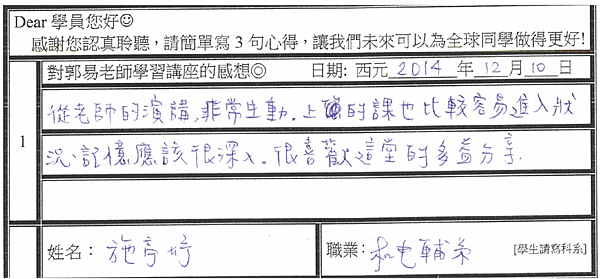 Dear 學員您好☺
感謝您認真聆聽，請簡單寫 3 句心得，讓我們未來可以為全球同學做得更好!
對郭易老師學習講座的感想◎ 日期: 西元 2014 年 12 月 10 日
1
從老師的演講,非常生動。上的課也比較容易進入狀
況,記憶應該很深入。很喜歡這堂的多益分享.
姓名： 施亭妤
職業： 和電輔 [學生請寫科系]